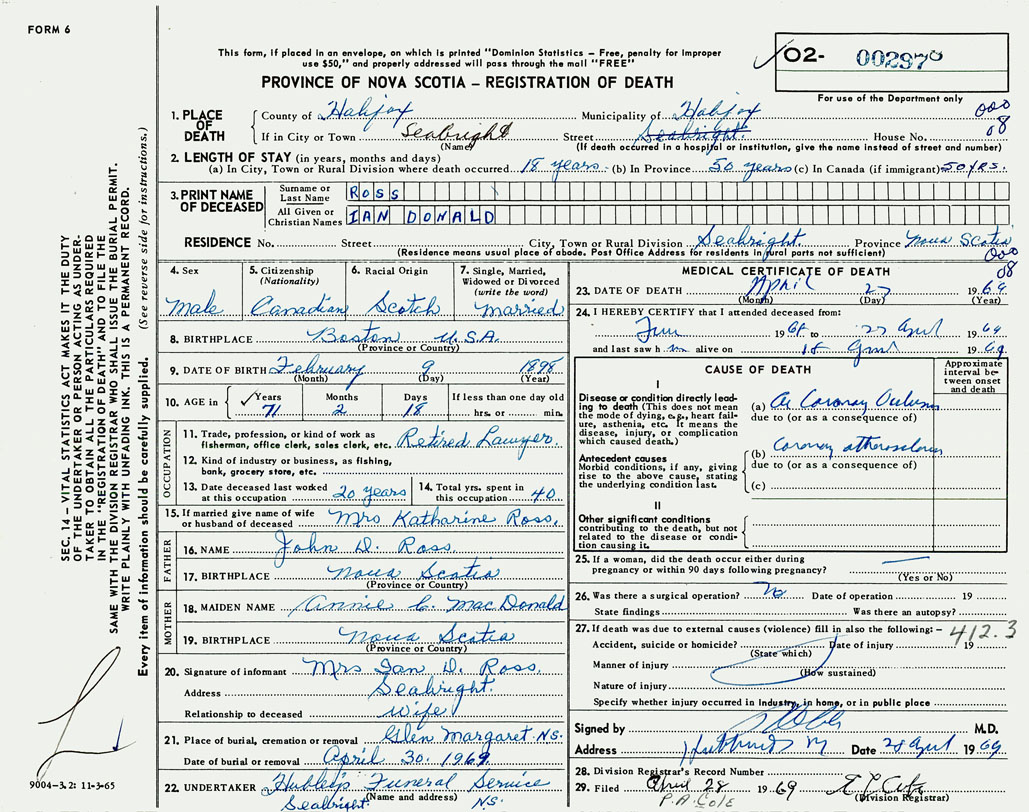 FORM 6
This form, if placed in an envelope, on which is printed "Dominion Statistics – Free, penalty for improper
use $50," and properly addressed will pass through the mail "FREE"
PROVINCE OF NOVA SCOTIA – REGISTRATION OF DEATH
02- 002970
For use of the Department only
1. PLACE OF DEATH
County of Halifax Municipality of Halifax 000
If in City or Town Seabright Street Seabright. House No. 08
(Name) (If death occurred in a hospital or institution, give the name instead of street and number)
2. LENGTH OF STAY (in years, months and days)
(a) In City, Town or Rural Division where death occurred 18 years. (b) In Province 50 years (c) In Canada (if immigrant) 50 yrs.
3. PRINT NAME OF DECEASED
Surname or Last Name ROSS
All Given or Christian Names IAN DONALD
RESIDENCE No. Street City, Town or Rural Division Seabright. Province Nova Scotia
(Residence means usual place of abode. Post Office Address for residents in rural parts not sufficient) 000
08
4. Sex 5. Citizenship (Nationality) 6. Racial Origin 7. Single, Married, Widowed or Divorced (write the word)
Male Canadian Scotch Married
8. BIRTHPLACE Boston U.S.A.
(Province or Country)
9. DATE OF BIRTH February 9 1898
(Month) (Day) (Year)
10. AGE in Years Months Days If less than one day old
71 2 18 hrs. or min.
OCCUPATION
11. Trade, profession, or kind of work as
fisherman, office clerk, sales clerk, etc. Retired Lawyer.
12. Kind of industry or business, as fishing,
bank, grocery store, etc.
13. Date deceased last worked at this occupation 20 years
14. Total yrs. spent in this occupation 40
15. If married give name of wife
or husband of deceased Mrs Katharine Ross.
FATHER
16. NAME John D. Ross.
17. BIRTHPLACE Nova Scotia
(Province or Country)
MOTHER
18. MAIDEN NAME Annie C. MacDonald
19. BIRTHPLACE Nova Scotia
(Province or Country)
20. Signature of informant Mrs Ian D. Ross.
Address Seabright.
Relationship to deceased Wife
21. Place of burial, cremation or removal Glen Margaret N.S.
Date of burial or removal April 30. 1969.
22. UNDERTAKER Hubley's Funeral Service
(Name and address)
Seabright. N.S.
MEDICAL CERTIFICATE OF DEATH
23. DATE OF DEATH April 27 1969
(Month) (Day) (Year)
24. I HEREBY CERTIFY that I attended deceased from:
19 to 27 April 1969
and last saw him alive on 18 April 1969
CAUSE OF DEATH
Approximate interval between onset and death
I
Disease or condition directly leading to death (This does not
mean the mode of dying, e.g., heart failure, asthenia, etc. It means the
disease, injury, or complication
which caused death.)
(a) Ac Coronary Occlusion
due to (or as a consequence of)
Antecedent causes
Morbid conditions, if any, giving
rise to the above cause, stating
the underlying condition last.
(b) Coronary atherosclerosis
due to (or as a consequence of)
(c)
II
Other significant conditions
contributing to the death, but not
related to the disease or condition causing it.
25. If a woman, did the death occur either during
pregnancy or within 90 days following pregnancy?
(Yes or No)
26. Was there a surgical operation? No Date of operation 19
State findings Was there an autopsy?
27. If death was due to external causes (violence) fill in also the following: – 412.3
Accident, suicide or homicide? Date of injury 19
(State which)
Manner of injury
(How sustained)
Nature of injury
Specify whether injury occurred in industry, in home, or in public place
Signed by M.D.
Address Date 28 April 1969
28. Division Registrar's Record Number
29. Filed April 28 1969
(Division Registrar)
P.A. COLE
SEC. 14 – VITAL STATISTICS ACT MAKES IT THE DUTY
OF THE UNDERTAKER OR PERSON ACTING AS UNDER-
TAKER TO OBTAIN ALL THE PARTICULARS REQUIRED
IN THE "REGISTRATION OF DEATH" AND TO FILE THE
SAME WITH THE DIVISION REGISTRAR WHO SHALL ISSUE THE BURIAL PERMIT.
WRITE PLAINLY WITH UNFADING INK. THIS IS A PERMANENT RECORD.
Every item of information should be carefully supplied. (See reverse side for instructions.)
9004–3.2: 11-3-65